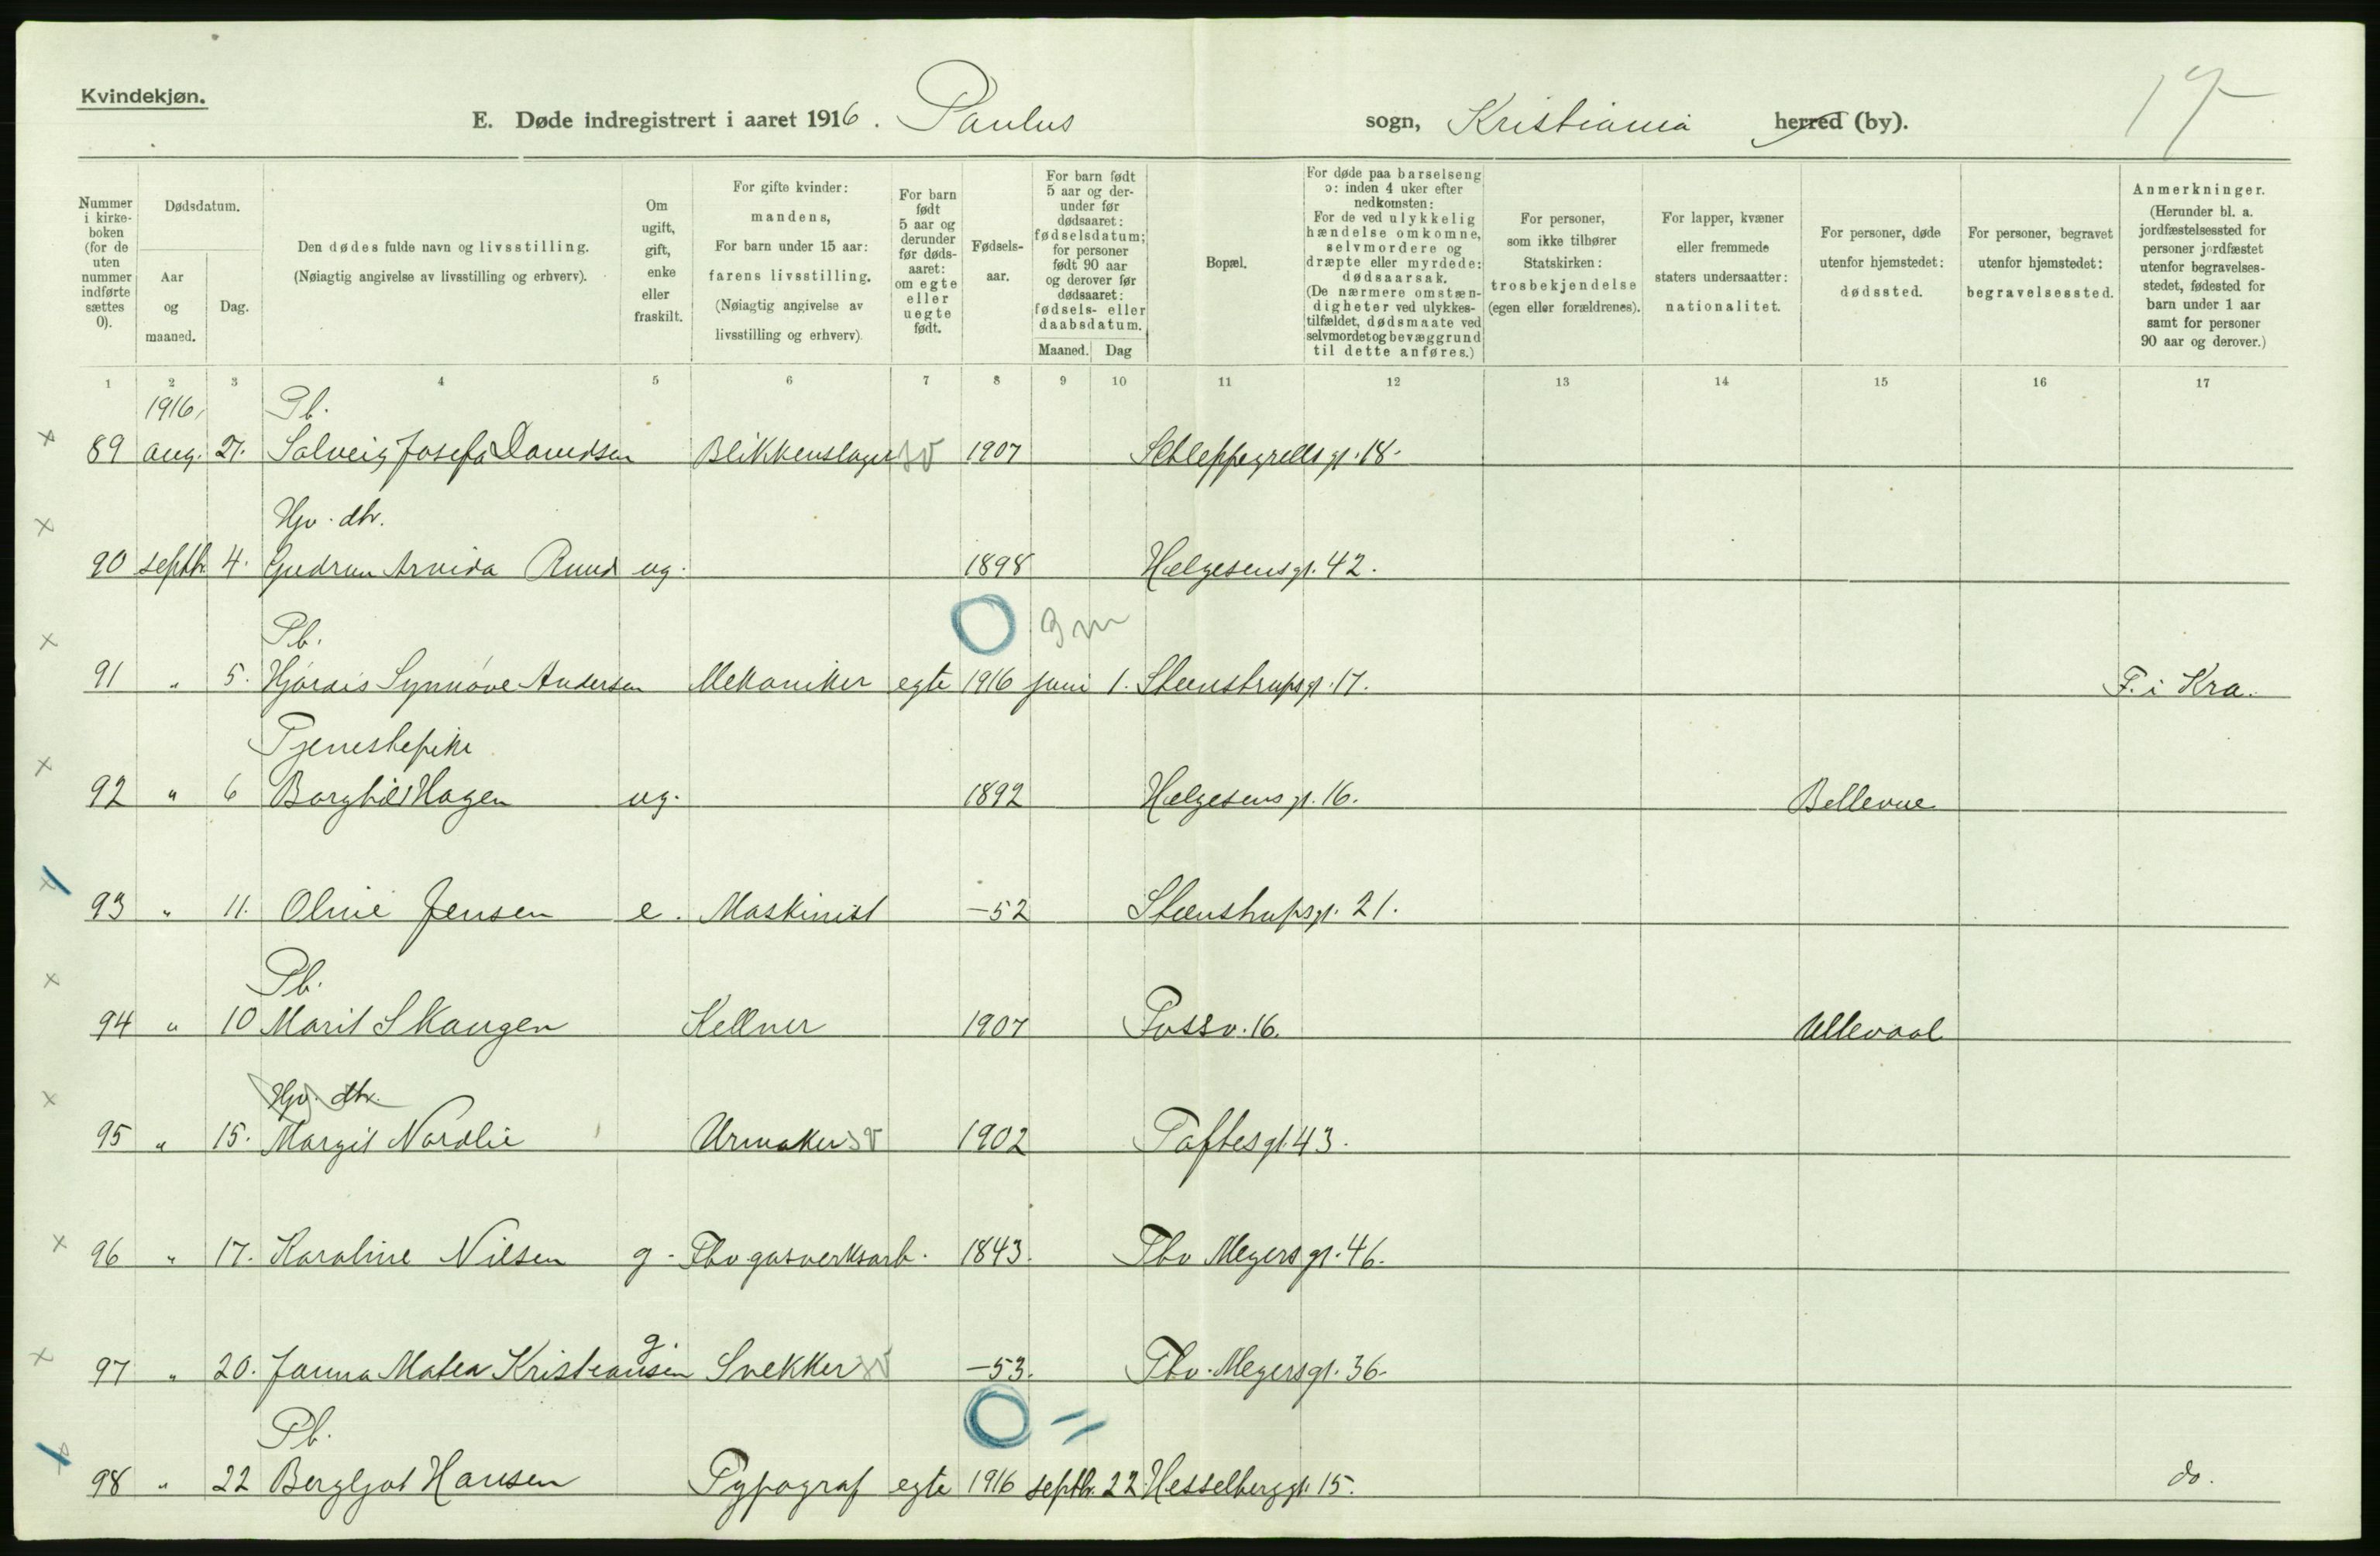 Kvindekjøn.
E. Døde indregistrert i aaret 1916. Paulus sogn, Kristiania herred (by).
17
Nummer i kirke-boken (for de uten nummer indførte sættes 0).
Dødsdatum.
Aar og maaned.
Dag.
Den dødes fulde navn og livsstilling.
(Nøiagtig angivelse av livsstilling og erhverv).
Om ugift, gift, enke eller fraskilt.
For gifte kvinder: mandens, For barn under 15 aar: farens livsstilling. (Nøiagtig angivelse av livsstilling og erhverv).
For barn født 5 aar og derunder før døds-aaret: om egte eller uegte født.
Fødsels-aar.
For barn født 5 aar og der-under før dødsaaret: fødselsdatum; for personer født 90 aar og derover før dødsaaret: fødsels- eller daabsdatum.
Maaned. Dag
Bopæl.
For døde paa barselseng ɔ: inden 4 uker efter nedkomsten: For de ved ulykkelig hændelse omkomne, selvmordere og dræpte eller myrdede: dødsaarsak. (De nærmere omstæn-digheter ved ulykkes-tilfældet, dødsmaate ved selvmordet og bevæggrund til dette anføres.)
For personer, som ikke tilhører Statskirken: trosbekjendelse (egen eller forældrenes).
For lapper, kvæner eller fremmede staters undersaatter: nationalitet.
For personer, døde utenfor hjemstedet: dødssted.
For personer, begravet utenfor hjemstedet: begravelsessted.
Anmerkninger. (Herunder bl. a. jordfæstelsessted for personer jordfæstet utenfor begravelses-stedet, fødested for barn under 1 aar samt for personer 90 aar og derover.)
1 2 3 4 5 6 7 8 9 10 11 12 13 14 15 16 17
1916, Pb.
89 aug. 27. Solveig Josefa Davidsen Blikkenslager sv 1907 Schleppegrellsgt. 18.
Hjv. dtr.
90 septbr. 4. Gudrun Arvida Ruud ug. 1898 Helgesensgt. 42.
Pb. 3 m
91 " 5. Hjørdis Synnøve Andersen Mekaniker egte 1916 juni 1. Steenstrupsgt. 17. F. i Kra.
Tjenestepike
92 " 6 Borghild Hagen ug. 1892 Helgesensgt. 16. Bellevue
93 " 11. Oline Jensen e. Maskinist -52 Steenstrupsgt. 21.
Pb.
94 " 10 Marit Skaugen Kellner 1907 Fossv. 16. Ullevaal
Hjv. dtr.
95 " 15. Margit Nordlie Urmaker sv 1902 Toftesgt. 43.
96 " 17. Karoline Nilsen g. Fhv gasverksarb. 1843. Thv Meyersgt. 46.
97 " 20. Janna Matea Kristiansen g. Snekker sv -53. Thv. Meyersgt. 36.
Pb.
98 " 22 Bergljot Hansen Typograf egte 1916 septbr. 22 Hesselberggt. 15. do.